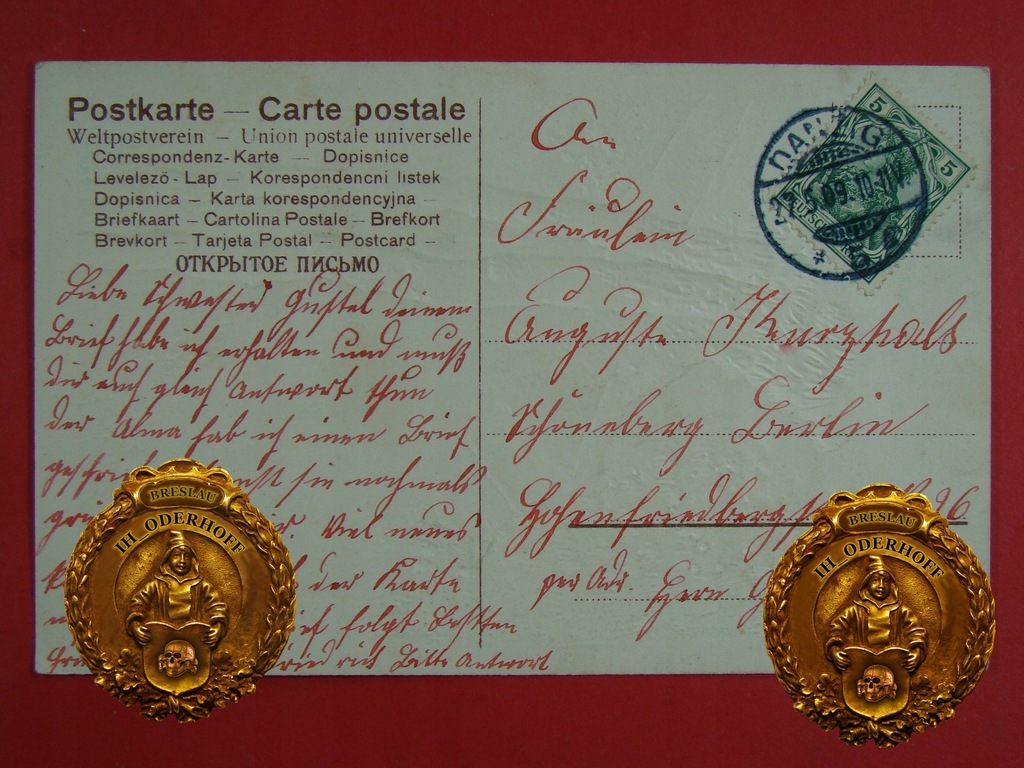 Postkarte — Carte postale
Weltpostverein – Union postale universelle
Correspondenz-Karte — Dopisnice
Levelező-Lap — Korespondencni listek
Dopisnica – Karta korespondencyjna –
Briefkaart – Cartolina Postale – Brefkort
Brevkort – Tarjeta Postal – Postcard –
ОТКРЫТОЕ ПИСЬМО
Liebe Schwester Gustel deinen
Brief habe ich erhalten und muß
dir auch gleich Antwort thun
der Alma hab ich einen Brief
sie nochmals
Viel neues
der Karte
folgt
Bitte Antwort
An
Fräulein
Auguste
Schöneberg Berlin
Hohenfriedbergstr 26
per Adr. Herrn
DANZIG
5
5
BRESLAU
IH_ODERHOFF
BRESLAU
IH_ODERHOFF